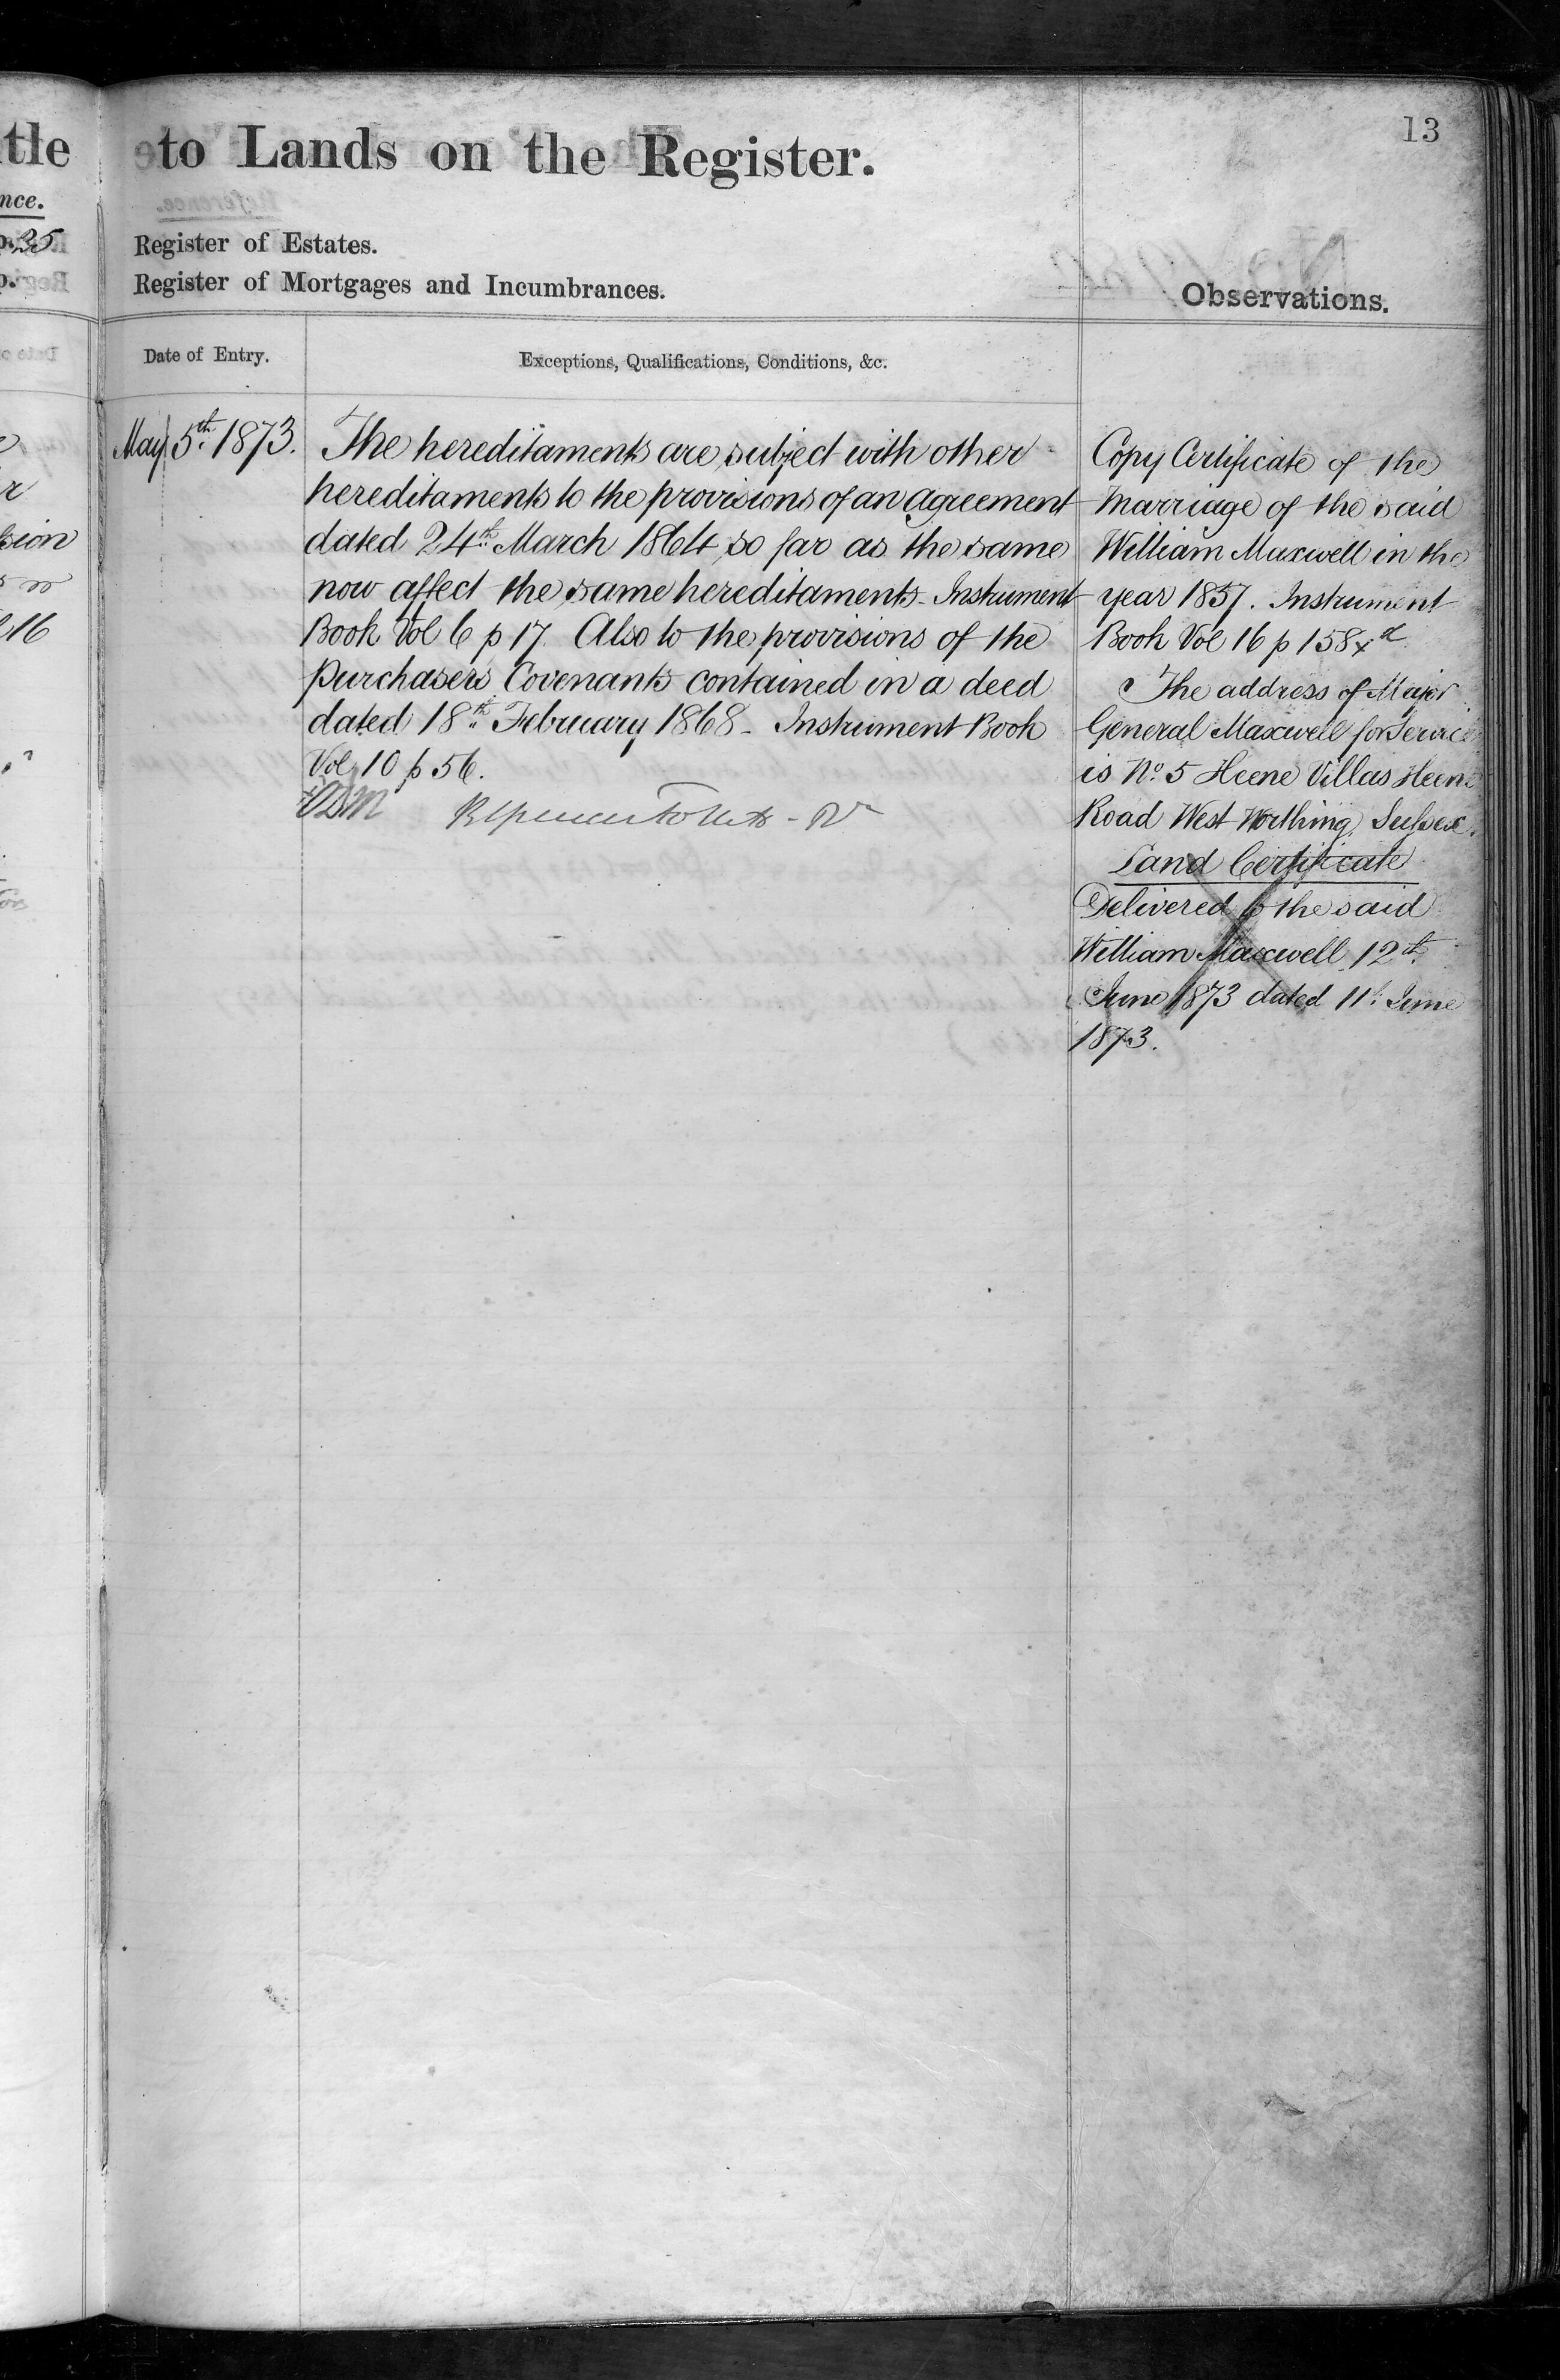 tle
nce.
p. 35
r
sion
16
to Lands on the Register.
13
Register of Estates.
Register of Mortgages and Incumbrances.
Observations.
Date of Entry.
Exceptions, Qualifications, Conditions, &c.
May 5th. 1873.
The hereditaments are subject with other
hereditaments to the provisions of an agreement
dated 24th March 1864 so far as the same
now affect the same hereditaments - Instrument
Book Vol 6 p 17. Also to the provisions of the
Purchasers Covenants contained in a deed
dated 18th February 1868 - Instrument Book
Vol. 10 p 56.
Copy Certificate of the
Marriage of the said
William Maxwell in the
year 1857. Instrument
Book Vol 16 p 158
The address of Major
General Maxwell for Service
is No. 5 Heene Villas Heene
Road West Worthing, Sussex.
Land Certificate
Delivered to the said
William Maxwell 12th.
June 1873 dated 11th. June
1873.